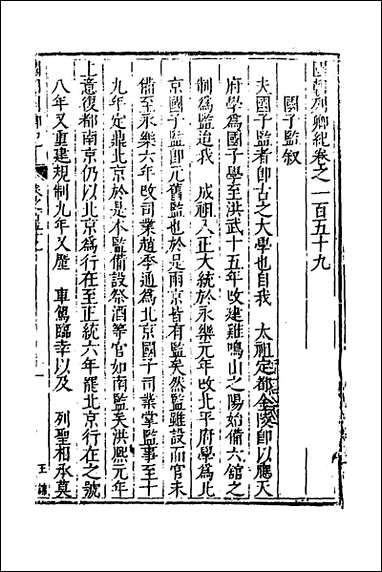 國朝列卿紀卷之一百五十九
國子監叙
夫國子監者即古之大學也自我 太祖定都金陵即以應天
府學為國子學至洪武十五年改建雞鳴山之陽始備六館之
制為監迨我 成祖入正大統於永樂元年改北平府學為北
京國子監即元舊監也於是兩京皆有監矣然監雖設而官未
備至永樂六年改司業趙季通為北京國子司業掌監事至十
九年定鼎北京於是本監備設祭酒等官如南監矣洪熙元年
上意復都南京仍以北京為行在至正統六年罷北京行在之號
八年又重建規制九年又歷 車駕臨幸以及 列聖相承莫
王